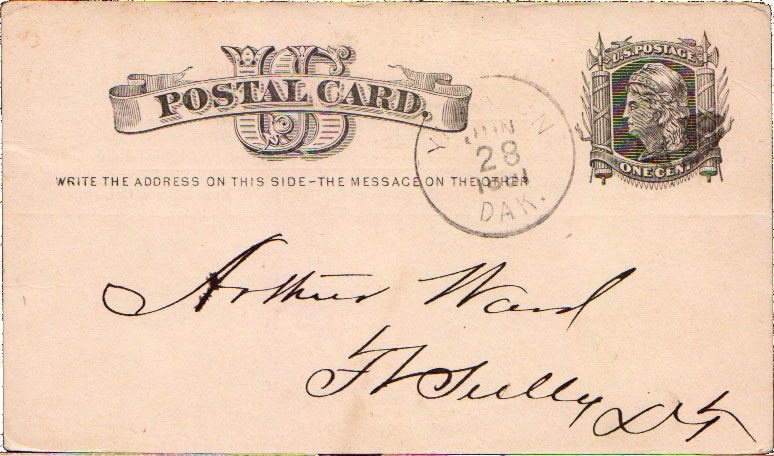 US
POSTAL CARD.
U.S. POSTAGE
ONE CENT
WRITE THE ADDRESS ON THIS SIDE-THE MESSAGE ON THE OTHER
JUN
28
DAK.
Arthur Ward
Ft Sully D.T.